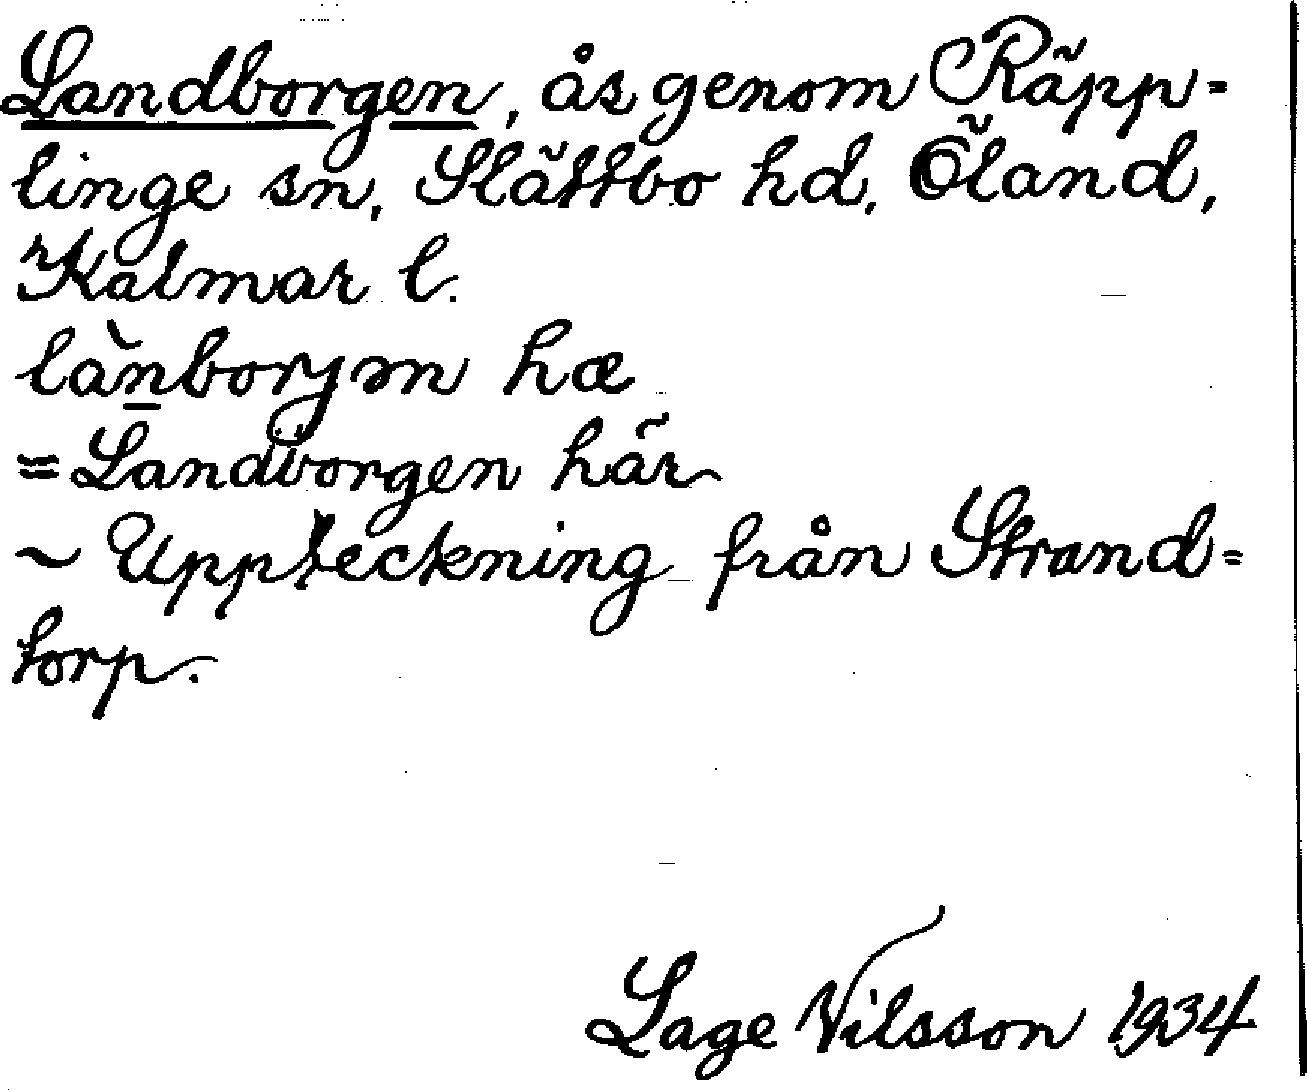 Landborgen, ås genom Räpp=
linge sn, Slättbo hd, Öland,
Kalmar l.
lànborjən hæ
= Landborgen här
~ Uppteckning från Strand=
torp.
Lage Nilsson 1934